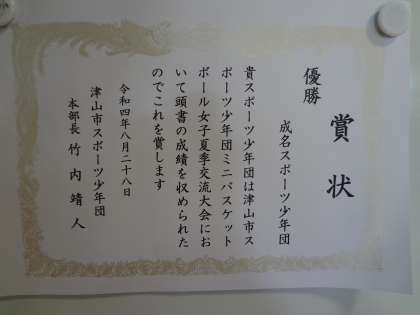 賞状
優勝
成名スポーツ少年団
貴スポーツ少年団は津山市ス
ポーツ少年団ミニバスケット
ボール女子夏季交流大会にお
いて頭書の成績を収められた
のでこれを賞します
令和四年八月二十八日
津山市スポーツ少年団
本部長 竹内靖人